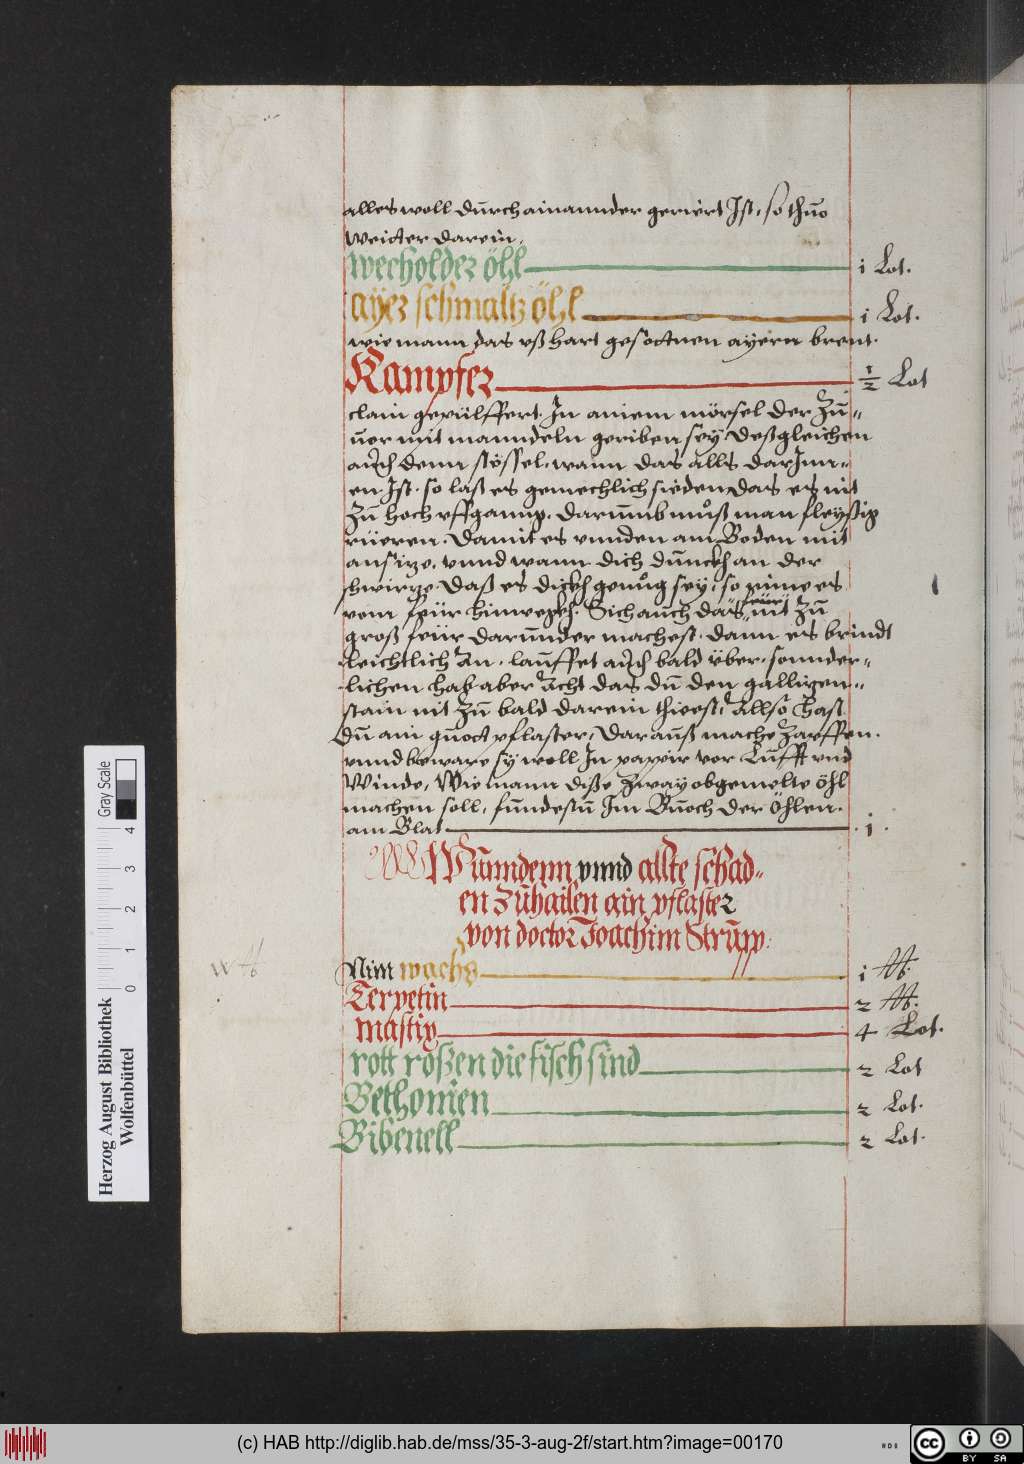 alles woll durch ainannder geriert Ist, so thuo
weitter darein,
wecholder öhl i Lot.
ayer schmaltz öhl i Lot.
wie mann das vß hart gesottnen ayern brent.
Kampfer 1/2 Lot
clain gepülffert. In ainem mörsel der zu„
uor mit manndeln geriben sey deßgleichen
auch denn stössel, wann das alls darInn„
en Ist. so laß es gemechlich sieden das es nit
zu hoch vffganng. darumb muoß man fleyssig
rüeren. damit es vnnden am Boden mit
ansitze, vnnd wann dich dunckh an der
schwirtze. daß es dickh genuog sey, so nime es
vom feür hinweckh. Sich auch das nit zu
groß feür darunder machest. dann es brindt
leichtlich an. lauffet auch bald über. sonnder„
lichen hab aber acht das du den gallitzen„
stain nit zu bald darein thieest, Allso hast
du ain guott pflaster, daraus mache zapffen.
vnnd beware sy woll In papir vor Lufft vnd
Winde, Wie mann diße zway obgemelte öhl
machen soll, fundestu Im Buoch der öhlen.
am Blat . i .
Wunndenn vnnd allte schad„
en zuhailen ain pflaster
von doctor Joachim Strupp.
Nim wachs i ℔.
Terpetin 2 ℔.
mastix 4 Lot.
rott roßen die fisch sind 2 Lot
Bethonien 2 Lot.
Bibenell 2 Lot.
Herzog August Bibliothek
Wolfenbüttel
Gray Scale
0 1 2 3 4
(c) HAB http://diglib.hab.de/mss/35-3-aug-2f/start.htm?image=00170
cc BY SA